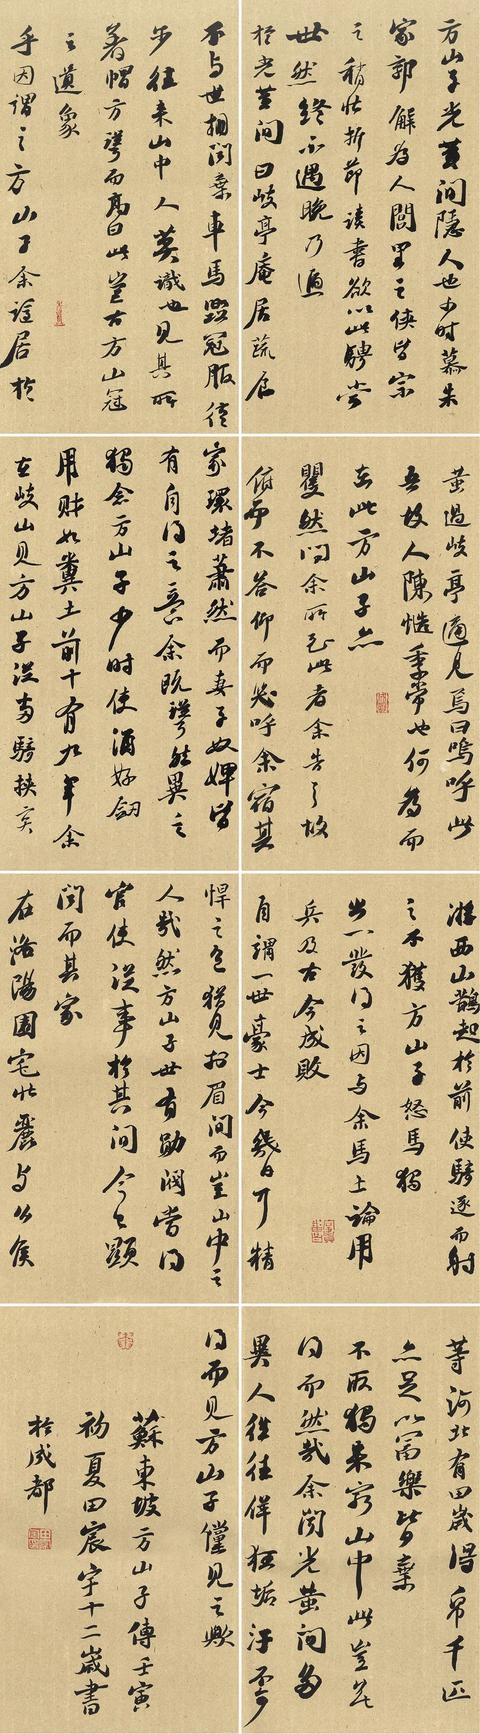 方山子光黄間隱人也少時慕朱
家郭解為人閭里之俠皆宗
之稍壯折節讀書欲以此騁當
世然終不遇晚乃遯
於光黄間曰岐亭庵居蔬食
不与世相聞棄車馬毁冠服徒
步往來山中人莫識也見其所
著帽方聳而高曰此豈古方山冠
之遺象
乎因謂之方山子余謫居於
黄過岐亭適見焉曰嗚呼此
吾故人陳慥季常也何為而
在此方山子亦
矍然問余所以至此者余告之故
俯而不答仰而笑呼余宿其
家環堵蕭然而妻子奴婢皆
有自得之意余既聳然異之
獨念方山子少時使酒好劍
用財如糞土前十有九年余
在岐山見方山子從兩騎挾二矢
游西山鵲起於前使騎逐而射
之不獲方山子怒馬獨
出一發得之因与余馬上論用
兵及古今成敗
自謂一世豪士今幾日耳精
悍之色猶見於眉間而豈山中之
人哉然方山子世有勳閥當得
官使從事於其間今已顯
聞而其家
在洛陽園宅壯麗与公侯
等河北有田歲得帛千匹
亦足以富樂皆棄
不取獨來窮山中此豈無
得而然哉余聞光黄間多
異人往往佯狂垢汙不可
得而見方山子儻見之歟
蘇東坡方山子傳壬寅
初夏田宸宇十二歲書
於成都